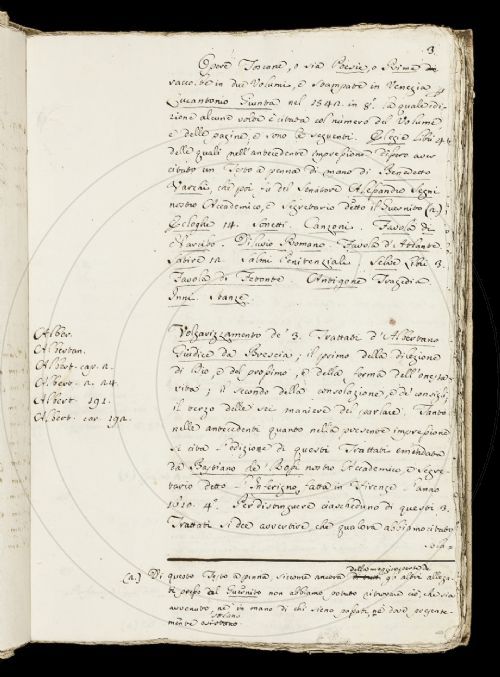 3.
Opere Toscane, o sia Poesie, o Rime
racco. te in due Volumi, e stampate in Venezia p
Lucantonio Giunta nel 1542 in 8°. la quale edi-
zione alcune volte è citata col numero del Volume
e delle pagine, e sono le seguenti. Elegie Libri 4
delle quali nell'antecedente impressione dissero aver
citato un Testo a penna di mano di Benedetto
Varchi, che poi fu del Senatore Alessandro Segni
nostro Accademico, e Segretario detto il Guernito (a)
Ecloghe 14. Sonetti. Canzoni. Favola di
Narciso. Diluvio Romano. Favola d'Atlante.
Satire 12. Salmi Penitenziali. Selve Libri 3.
Favola di Fetonte. Antigone Tragedia
Inni. Stanze.
Alber.
Albertan.
Albert. car. 2.
Albert. 2. 24.
Albert 191.
Albert. car. 192.
Volgarizzamento de' 3. Trattati d'Albertano
Giudice da Brescia; il primo della dilezione
di Dio, e del prossimo, e della forma dell'onesta
vita; il secondo della consolazione, e de' consigli;
il terzo delle sei maniere del parlare. Tanto
nelle antecedenti quanto nella presente impressione
si cita l'edizione di questi Trattati emendata
da Bastiano de' Rossi nostro Accademico, e Segre-
tario detto l'Inferigno fatta in Firenze l'anno
1610. 4°. Per distinguere ciascheduno di questi 3.
Trattati si dee avvertire, che qualora abbiamo citato
sola=
della maggior parte de
(a.) Di questo Testo a penna, siccome ancora di tutti gli altri allega-
ti presso del Guernito non abbiamo potuto ritrovare ciò, che sia
avvenuto, nè in mano di chi sieno passati, nè dove presente-
mente esistano